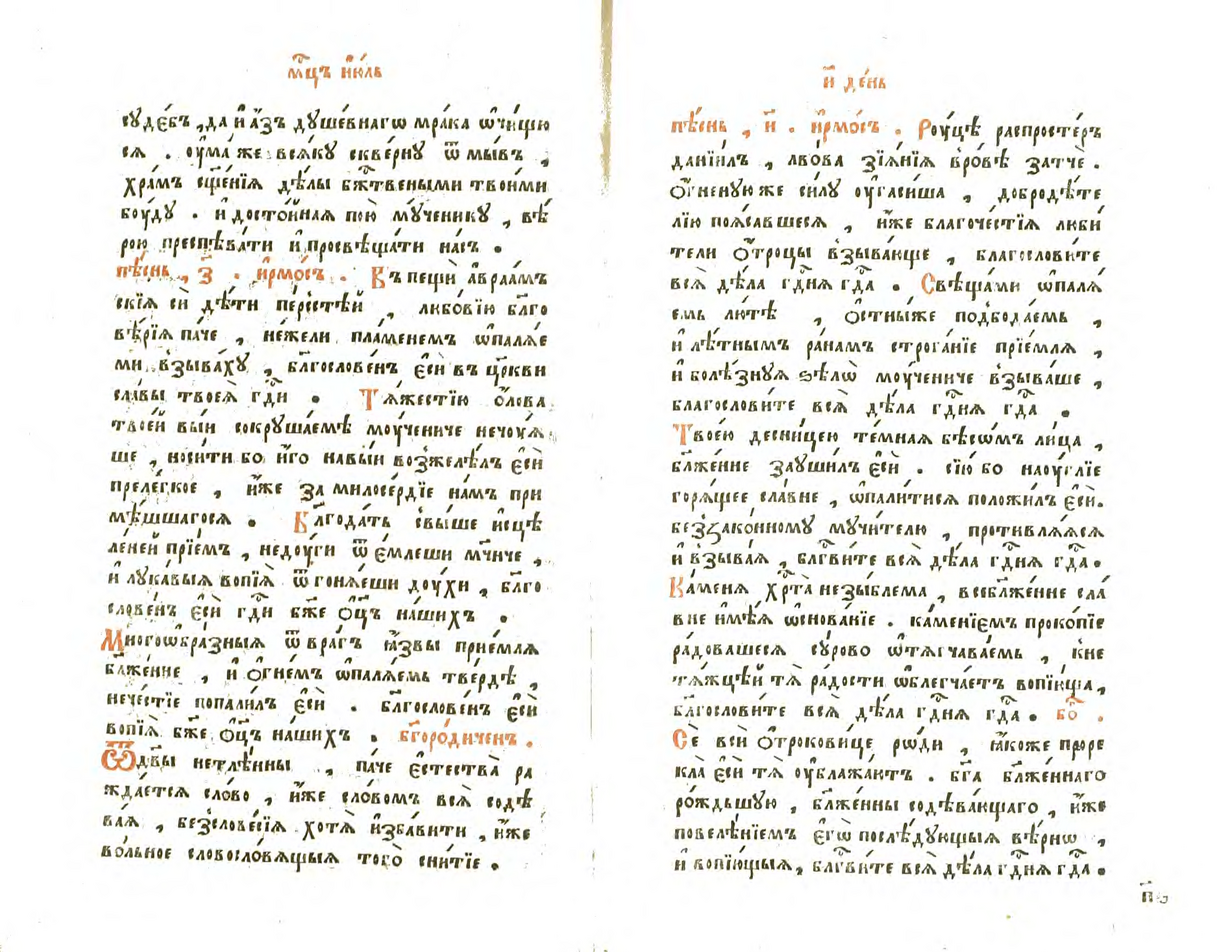 мцъ июль
ѕудебъ , да и азъ душевнагѡ мрака ѡчищю
ся . оума же всяку скверну ѿ мывъ ,
храмъ сщения дѣлы бжтвеными твоими
боуду . и достойная пою мученику , вѣ
рою преспѣвати и просвѣщати насъ .
пѣснь , з҃ . ирмосъ . Въ пещи авраам̾
ския си дѣти перстѣй , любовїю бл҃го
вѣрїя паче , нежели пламенемъ ѡпаляе
ми взываху , бл҃гословенъ еси въ цркви
славы твоея гд҃и . Тяжестїю олова
твоей выи сокрушаемѣ моучениче нечоуя
ше , носити бо иго на выи возжелѣлъ еси
прелегкое , иже за милосердїе намъ при
мѣшшагося . Благодать свыше исцѣ
леней прїемъ , недоуги ѿ емлеши мч҃ниче ,
и лукавыя вопїя ѿ гоняеши доухи , бл҃го
словенъ еси гд҃и бж҃е оц҃ъ нашихъ .
Многоѡбразныя ѿ врагъ язвы приемля
блажение , и огнемъ ѡпаляемь твердѣ ,
нечестїе попалилъ еси . бл҃гословенъ еси
вопїя бж҃е оц҃ъ нашихъ . бг҃ородиченъ .
Ѿ дв҃ы нетлѣнны , паче естества ра
ждается слово , иже словомъ вся содѣ
вая , безсловесїя хотя избавити , иже
вольное словословящыя того снитїе .
и҃ день
пѣснь , и҃ . ирмосъ . Роуцѣ распростеръ
данїилъ , львова зїянїя вровѣ затче .
Огненую же силу оугасиша , добродѣте
лїю поясавшеся , иже благочестїя люби
тели отроцы взывающе , благословите
вся дѣла гд҃ня гд҃а . Свѣщами ѡпаля
емь лютѣ , остныже подбодаемь ,
и лѣтнымъ ранамъ строганїе прїемля ,
и болѣзнуя ѕѣлѡ моучениче взываше ,
благословите вся дѣла гд҃ня гд҃а .
Твоею десницею темная бѣсѡмъ лица ,
блажение заушилъ еси . сїю бо наоуглїе
горящее славне , ѡпалитися положилъ еси .
беззаконному мучителю , противляяся
и взывая , блг҃вите вся дѣла гд҃ня гд҃а .
Каменя хр҃та незыблема , всеблажение сла
вне имѣя ѡснованїе . каменїемъ прокопїе
радовашеся сурово ѡтягчаваемь , кне
тяжцѣй тя радости ѡблегчаетъ вопїюща ,
бл҃гословите вся дѣла гд҃ня гд҃а . бо .
Се вси отроковице рѡди , якоже проре
кла еси тя оублажаютъ . бг҃а блаженнаго
рождьшую , блаженны содѣвающаго , иже
повелѣнїемъ егѡ послѣдующыя вѣрнѡ ,
и вопїющыя , блг҃вите вся дѣла гд҃ня гд҃а .